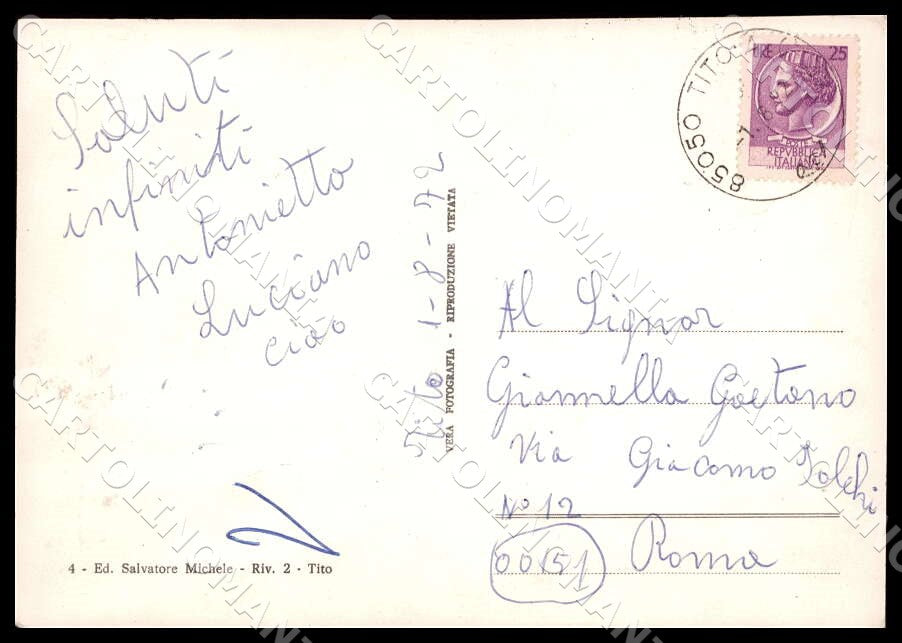 Saluti
infiniti
Antonietta
Luciano
ciao
Tito 1-8-72
VERA FOTOGRAFIA - RIPRODUZIONE VIETATA
4 - Ed. Salvatore Michele - Riv. 2 - Tito
85050 TITO
LIRE 25
POSTE
REPVBBLICA
ITALIANA
Al Signor
Giannella Gaetano
Via Giacomo Folchi
N° 12
00151 Roma
CARTOLINOMANIA